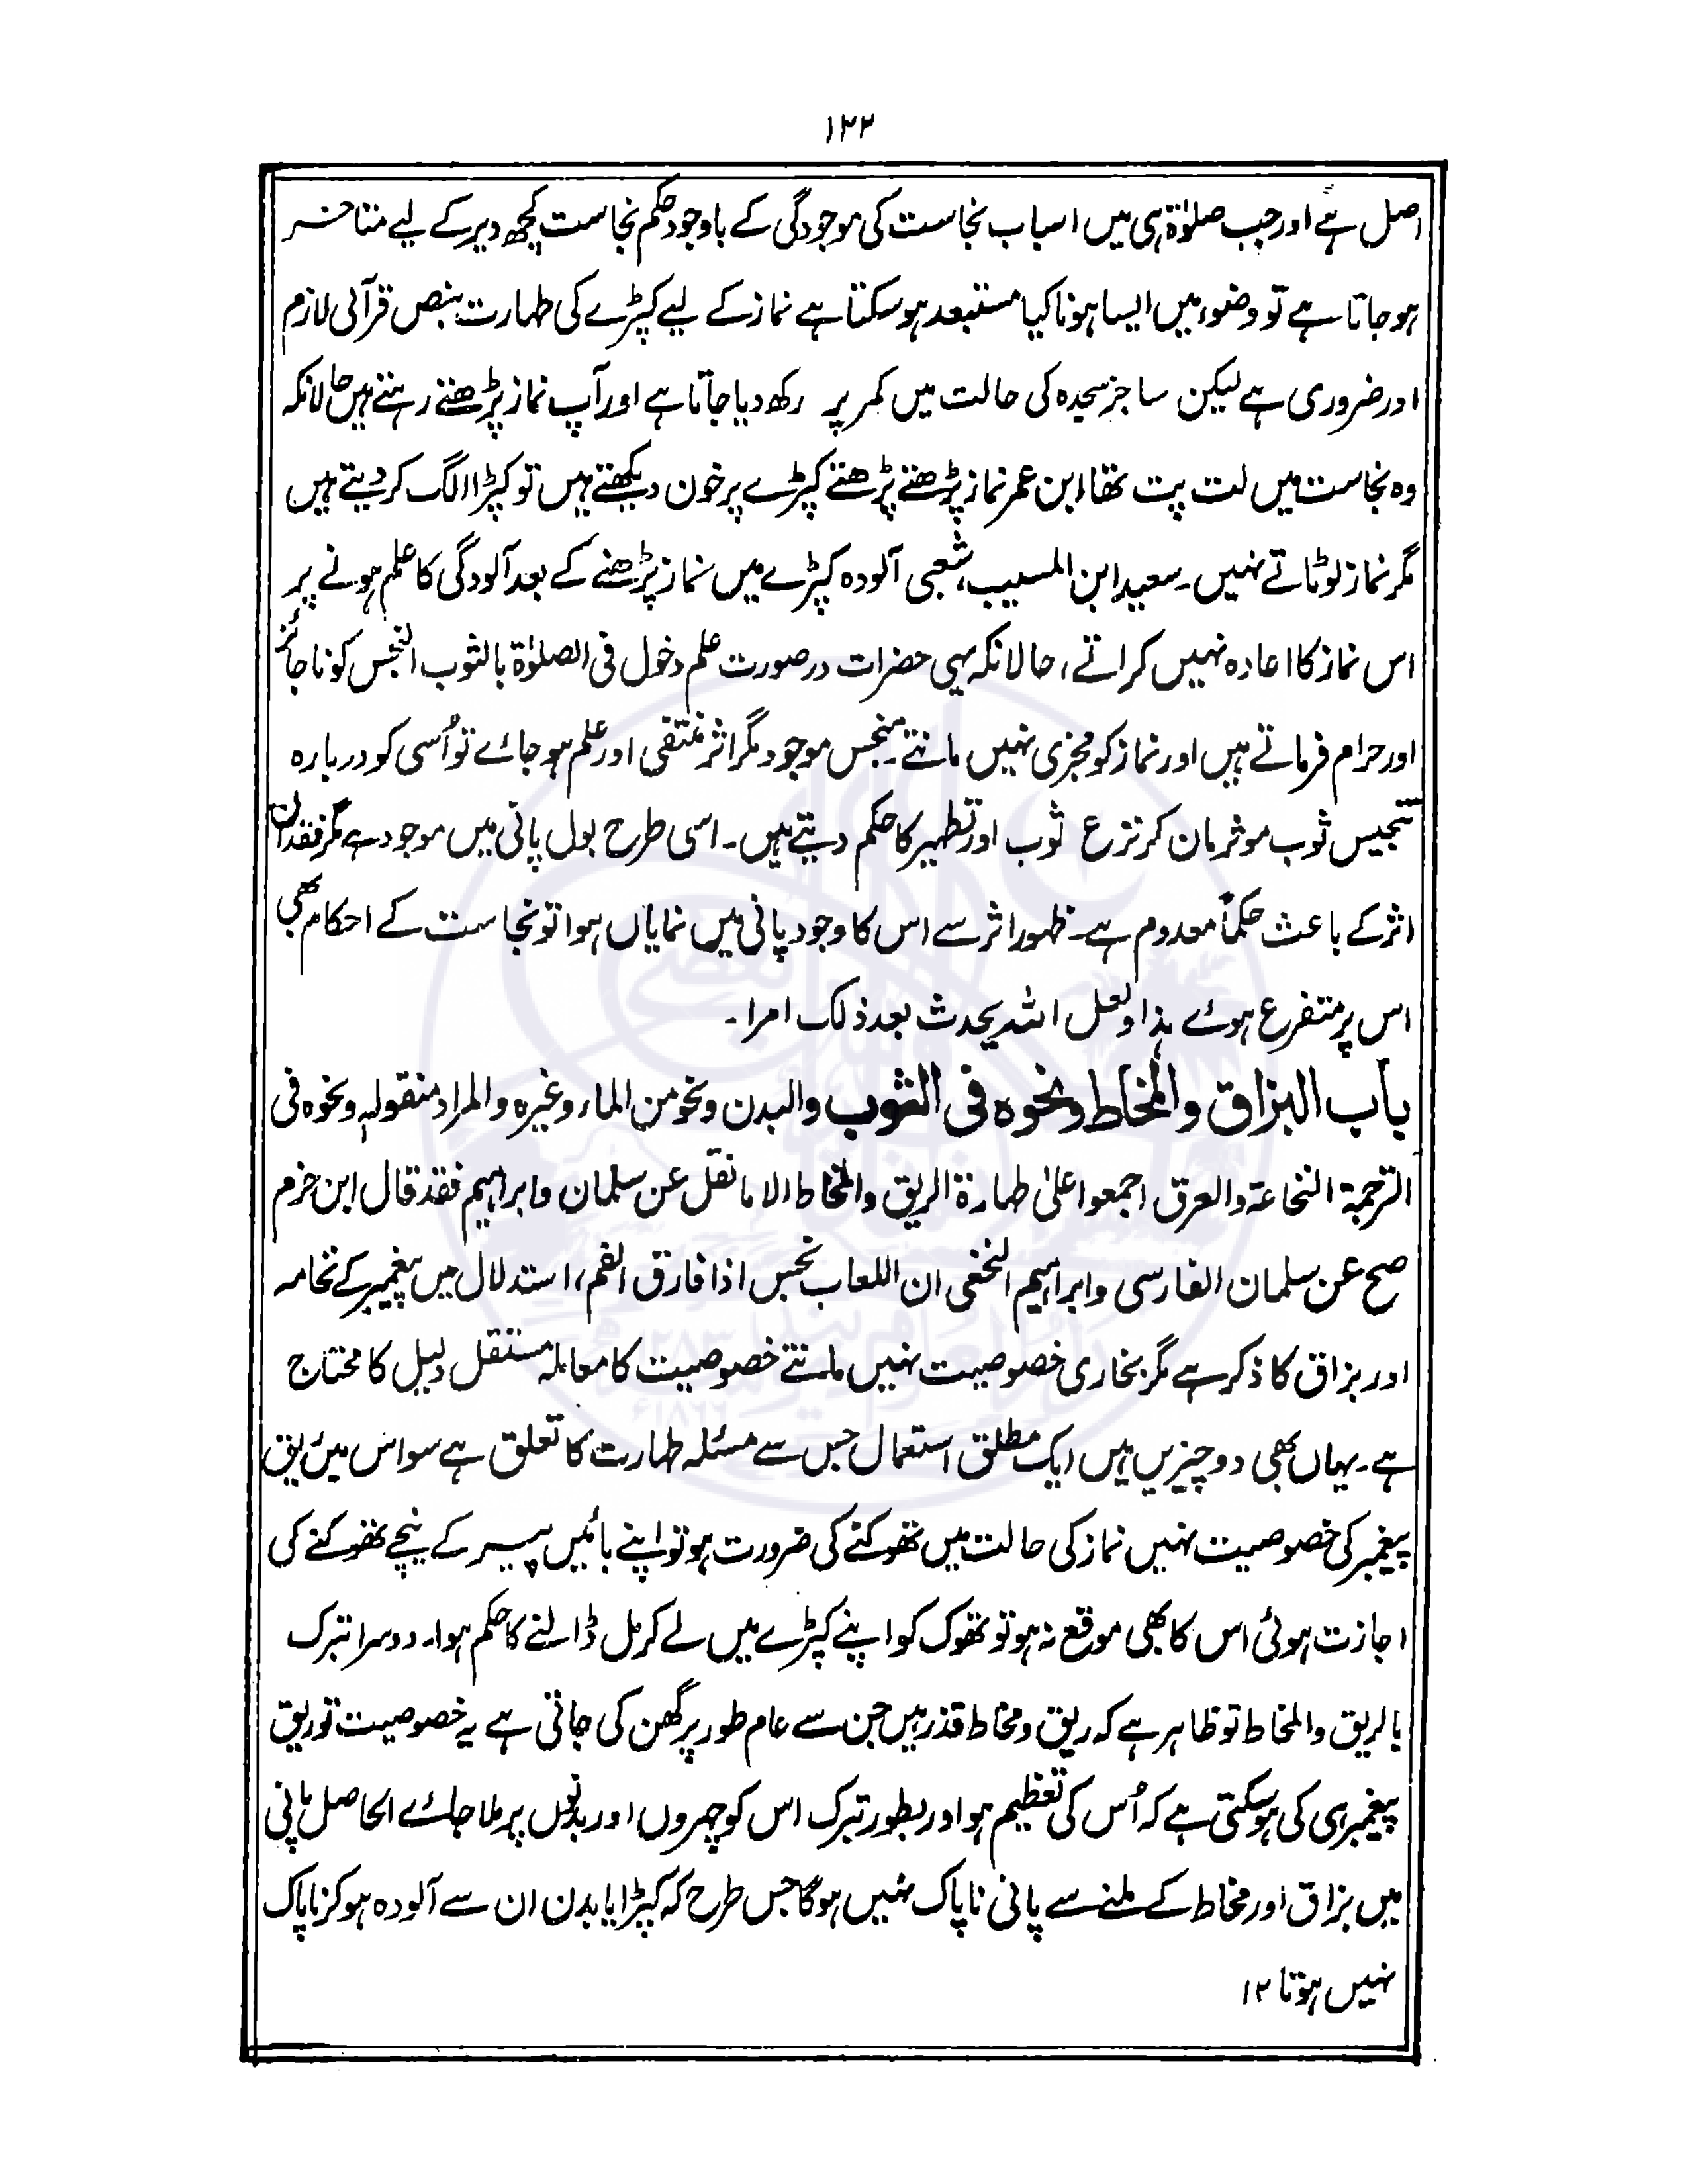 ۱۲۲
اصل ہے اور جب صلوٰۃ ہی میں اسباب نجاست کی موجودگی کے باوجود حکم نجاست کچھ دیر کے لیے متاخر
ہو جاتا ہے تو وضوء میں ایسا ہونا کیا مستبعد ہو سکتا ہے نماز کے لیے کپڑے کی طہارت بنص قرآنی لازم
اور ضروری ہے لیکن سا جز سجدہ کی حالت میں کمر پر رکھ دیا جاتا ہے اور آپ نماز پڑھتے رہتے ہیں حالانکہ
وہ نجاست میں لت پت تھا ابن عمر نماز پڑھتے پڑھتے کپڑے پر خون دیکھتے ہیں تو کپڑا الگ کر دیتے ہیں
مگر نماز لوٹاتے نہیں۔ سعید ابن المسیب، شعبی آلودہ کپڑے میں نماز پڑھنے کے بعد آلودگی کا علم ہونے پر
اس نماز کا اعادہ نہیں کراتے، حالانکہ یہی حضرات در صورت علم دخول فی الصلوٰۃ بالثوب النجس کو ناجائز
اور حرام فرماتے ہیں اور نماز کو مجزی نہیں مانتے۔ منجس موجود مگر اثر منتفی اور علم ہو جائے تو اُسی کو دربارہ
تنجیس ثوب موثر مان کر نزع ثوب اور تطہیر کا حکم دیتے ہیں۔ اسی طرح بول پانی میں موجود ہے مگر فقدان
اثر کے باعث حکماً معدوم ہے۔ ظہور اثر سے اس کا وجود پانی میں نمایاں ہوا تو نجاست کے احکام بھی
اس پر متفرع ہوئے ہذا ولعل اللہ یحدث بعد ذلک امرا۔
باب البزاق والمخاط ونحوہ فی الثوب والبدن ونحو من الماء وغیرہ والمراد منقولہ ونحوہ فی
الترجمۃ النخاعۃ والعرق اجمعوا علیٰ طہارۃ الریق والمخاط الا ما نقل عن سلمان وابراہیم فقد قال ابن حزم
صح عن سلمان الفارسی وابراہیم النخعی ان اللعاب نجس اذا فارق الفم، استدلال میں پیغمبر کے نخامہ
اور بزاق کا ذکر ہے مگر بخاری خصوصیت نہیں مانتے خصوصیت کا معاملہ مستقل دلیل کا محتاج
ہے۔ یہاں بھی دو چیزیں ہیں ایک مطلق استعمال جس سے مسئلہ طہارت کا تعلق ہے سو اس میں ریق
پیغمبر کی خصوصیت نہیں نماز کی حالت میں تھوکنے کی ضرورت ہو تو اپنے بائیں پیر کے نیچے تھوکنے کی
اجازت ہوئی اس کا بھی موقع نہ ہو تو تھوک کو اپنے کپڑے میں لے کر مل ڈالنے کا حکم ہوا۔ دوسرا تبرک
بالریق والمخاط تو ظاہر ہے کہ ریق و مخاط قذر ہیں جن سے عام طور پر گھن کی جاتی ہے یہ خصوصیت تو ریق
پیغمبر ہی کی ہو سکتی ہے کہ اُس کی تعظیم ہو اور بطور تبرک اس کو چہروں اور بدنوں پر ملا جائے الحاصل پانی
میں بزاق اور مخاط کے ملنے سے پانی ناپاک نہیں ہوگا جس طرح کہ کپڑا یا بدن ان سے آلودہ ہو کر ناپاک
نہیں ہوتا ۱۲